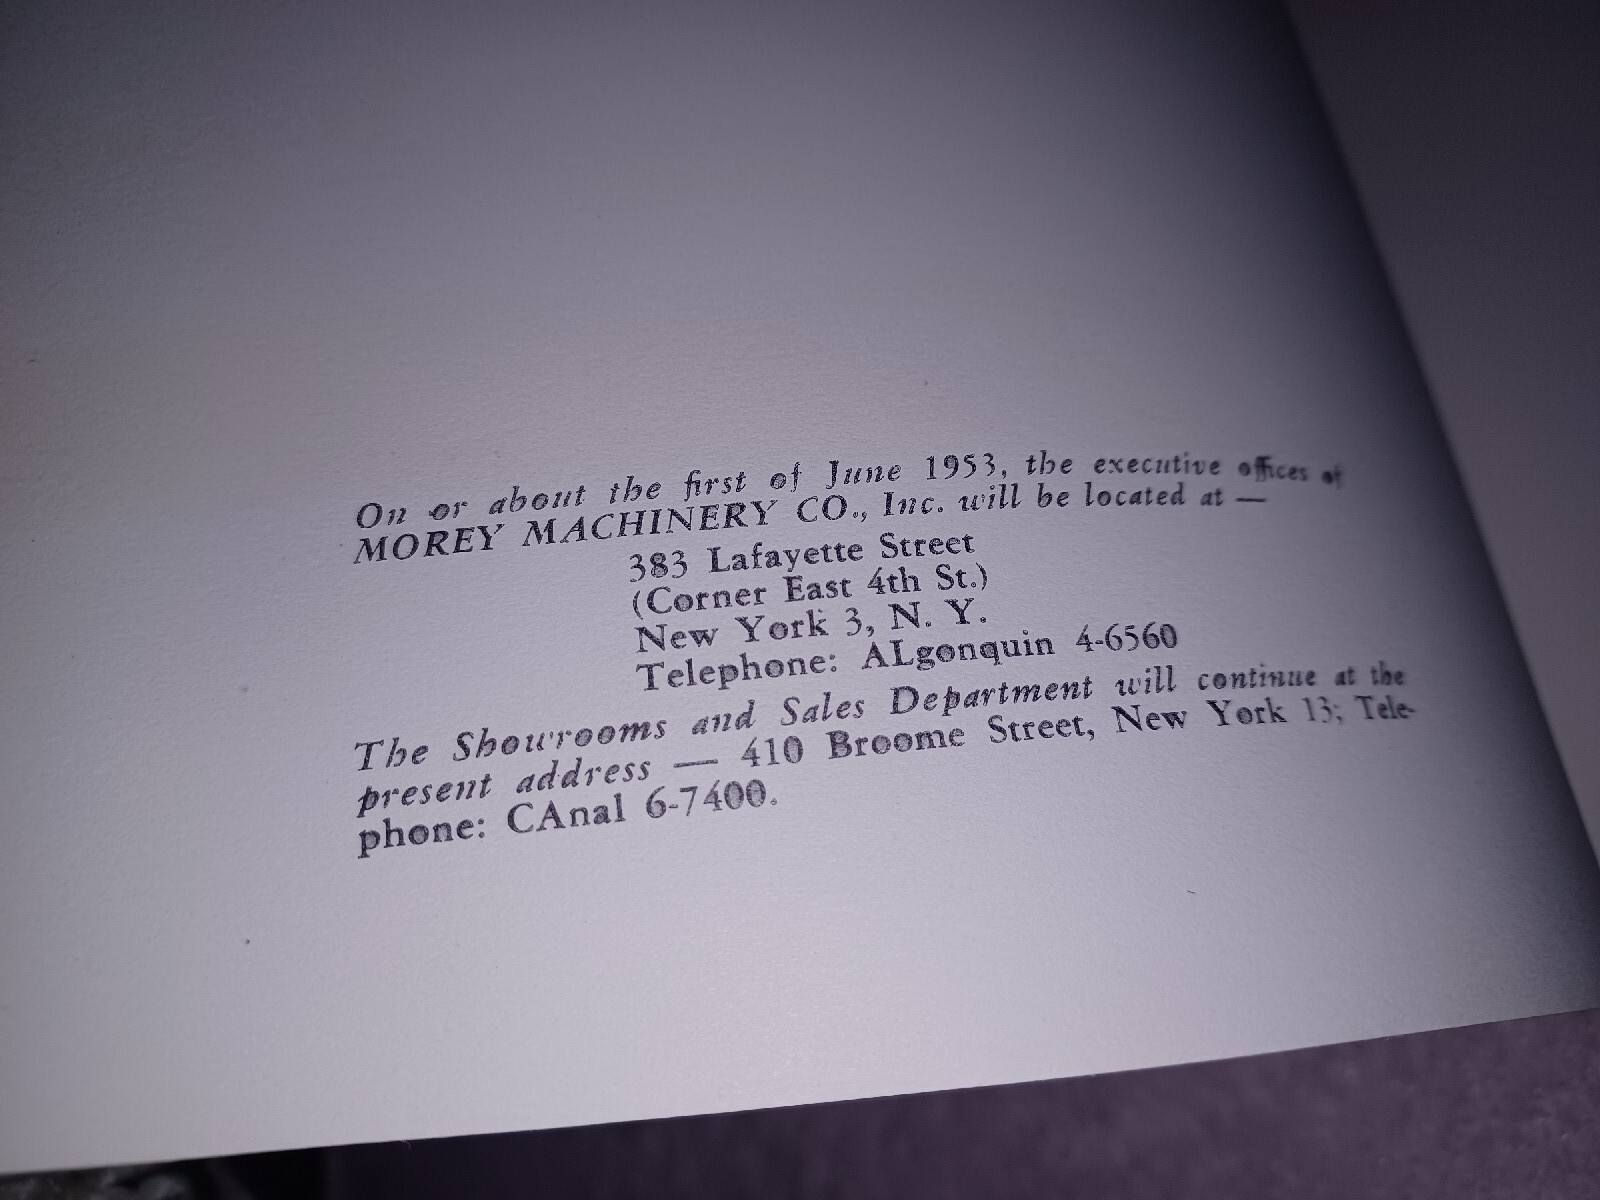 On or about the first of June 1953, the executive offices of
MOREY MACHINERY CO., Inc. will be located at —
383 Lafayette Street
(Corner East 4th St.)
New York 3, N. Y.
Telephone: ALgonquin 4-6560
The Showrooms and Sales Department will continue at the
present address — 410 Broome Street, New York 13; Tele-
phone: CAnal 6-7400.